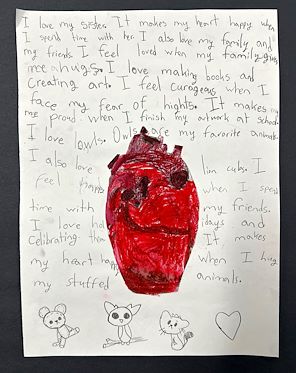 I love my sister. It makes my heart happy when
I spend time with her. I also love my family and
my friends. I feel loved when my family gives
me a hugs. I love making books and
Creating art. I feel curageous when I
face my fear of hights. It makes
me proud when I finish my artwork at school.
I love owls. Owls are my favorite animals.
I also love lim cubs. I
feel happy when I spend
time with my friends.
I love holidays and
Celibrating It makes
my heart happy when I hug
my stuffed animals.